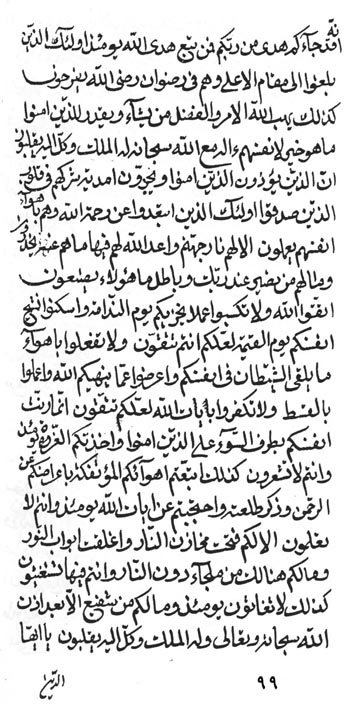 نّه
قد جاءكم هدى من ربكم فمن يتبع هدى الله يومئذ اولئك الذين
بلغوا الى مقام الاعلى وهم فى رضوان رضى الله يفرحون
كذلك يهب الله الامر والفضل من يشآء ويقدر للذين امنوا
ما هو خير لانفسهم ء اله مع الله سبحانه له الملك وكل اليه يقلبون
ان الذين يؤذون الذين امنوا ويحرفون فى قلوب
الذين صدقوا اولئك الذين ابعدوا عن رحمة الله وهم باهواء
انفسهم يعملون الا لهم نار جهنم واعد الله لهم فيها ما هم
وما لهم من نصير عند ربك وباطل ما هؤلاء يصنعون
اتقوا الله ولا تكسبوا عملا يخزيكم يوم القيمة واسكنوا
انفسكم يوم القيمة لعلكم انتم تتقون ولا تفعلوا باهوآء
ما يلقى الشيطان فى انفسكم واعرضوا عما ينهيكم الله واعملوا
بالقسط ولا تكفروا بايات الله لعلكم تتقون اغارت
انفسكم بطرف السوء على الذين امنوا واخذتكم الغرة يومئذ
وانتم لا تشعرون كذلك اهوآئكم المؤتفكة باعراضكم عن
الرحمن وذكر طلعته واحتجبتم عن ايات الله يومئذ وانتم لا
تعلمون الا لكم فتحت مخازن النار واغلقت ابواب النور
وما لكم هنالك من ملجاء دون النار وانتم فيها تستغيثون
كذلك لا تغاثون يومئذ وما لكم من شفيع الا بعد اذن
الله سبحانه وتعالى وله الملك وكل اليه يقلبون يا ايها
٩٩
الذين